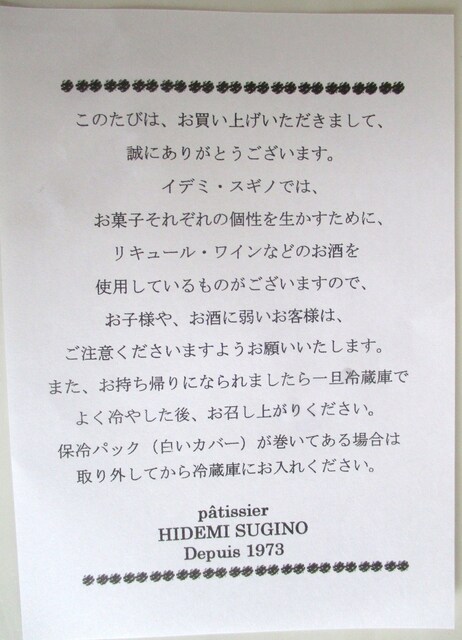 このたびは、お買い上げいただきまして、
誠にありがとうございます。
イデミ・スギノでは、
お菓子それぞれの個性を生かすために、
リキュール・ワインなどのお酒を
使用しているものがございますので、
お子様や、お酒に弱いお客様は、
ご注意くださいますようお願いいたします。
また、お持ち帰りになられましたら一旦冷蔵庫で
よく冷やした後、お召し上がりください。
保冷パック（白いカバー）が巻いてある場合は
取り外してから冷蔵庫にお入れください。
pâtissier
HIDEMI SUGINO
Depuis 1973